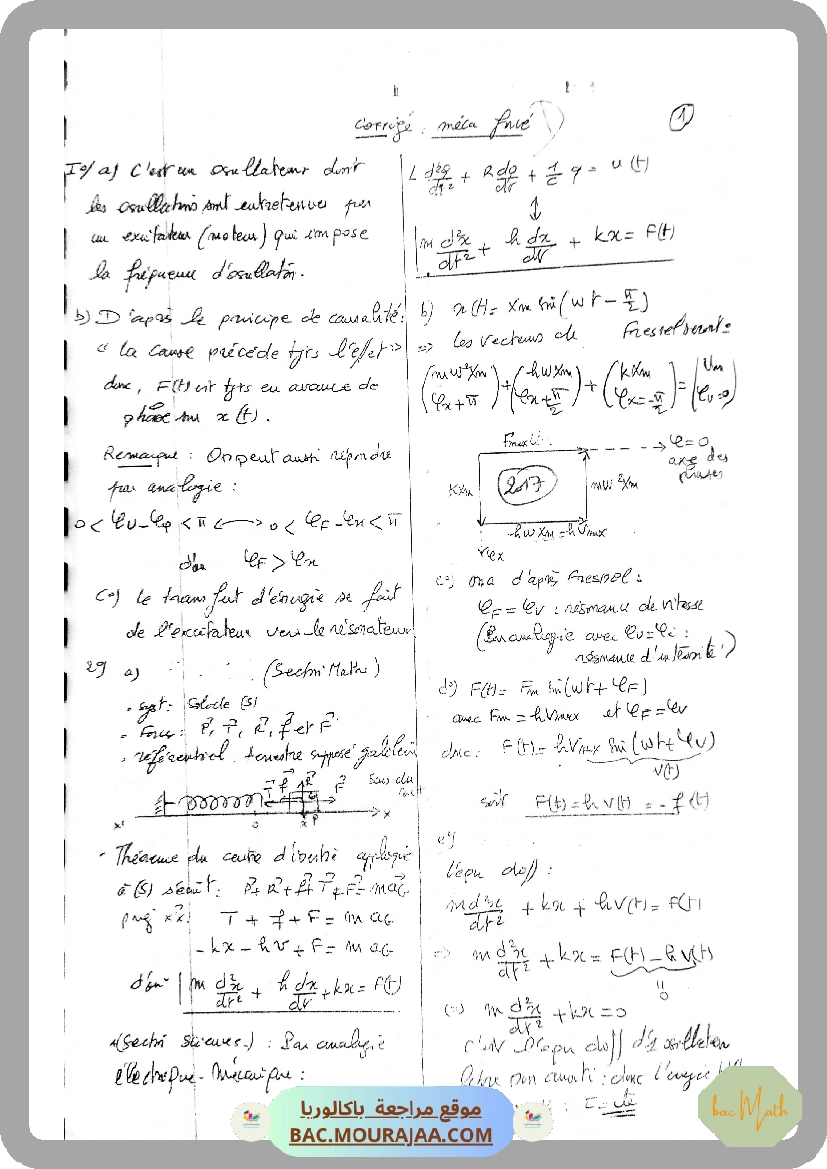 Corrigé : méca forcé
1
I°/ a) C'est un oscillateur dont
les oscillations sont entretenues par
un excitateur (moteur) qui impose
la fréquence d'oscillation.
b) D'après le principe de causalité :
" la cause précède tjrs l'effet "
donc, F(t) est tjrs en avance de
phase sur x(t).
Remarque : On peut aussi répondre
par analogie :
0 < φu - φq < π ⟷ 0 < φF - φx < π
d'où φF > φx
c°) le transfert d'énergie se fait
de l'excitateur vers le résonateur
2°/ a) (Section Maths)
- syst : Solide (S)
- Forces : P⃗, T⃗, R⃗, f⃗ et F⃗
- référentiel terrestre supposé galiléen
T⃗ f⃗ R⃗ F⃗ Sens du
x' 0 x P⃗ x
- Théorème du centre d'inertie appliqué
à (S) s'écrit : P⃗ + R⃗ + f⃗ + T⃗ + F⃗ = m a⃗G
proj x'x : T + f + F = m aG
-kx - hv + F = m aG
d'où m d²x/dt² + h dx/dt + kx = F(t)
(Section Sciences) : Par analogie
électrique - Mécanique :
L d²q/dt² + R dq/dt + 1/C q = u(t)
↕
m d²x/dt² + h dx/dt + kx = F(t)
b) x(t) = Xm sin(wt - π/2)
=> les vecteurs de Fresnel seront :
(mw²Xm, φx + π) + (hwXm, φx + π/2) + (kXm, φx = -π/2) = (Um, φu = 0)
Fmax φ = 0
axe des
phases
kXm 2017 mw²Xm
hwXm = hVmax
φx
c°) on a d'après Fresnel :
φF = φv : résonance de vitesse
(En analogie avec φu = φi :
résonance d'intensité)
d°) F(t) = Fm sin(wt + φF)
avec Fm = hVmax et φF = φv
donc : F(t) = hVmax sin(wt + φv)
v(t)
soit F(t) = h v(t) = - f(t)
e°/
l'equ diff :
m d²x/dt² + kx + hv(t) = F(t)
=> m d²x/dt² + kx = F(t) - hv(t)
0
(=) m d²x/dt² + kx = 0
c'est l'equ diff d'1 oscillation
libre non amorti : donc l'énergie
: E = cte
موقع مراجعة باكالوريا
BAC.MOURAJAA.COM
bac Math